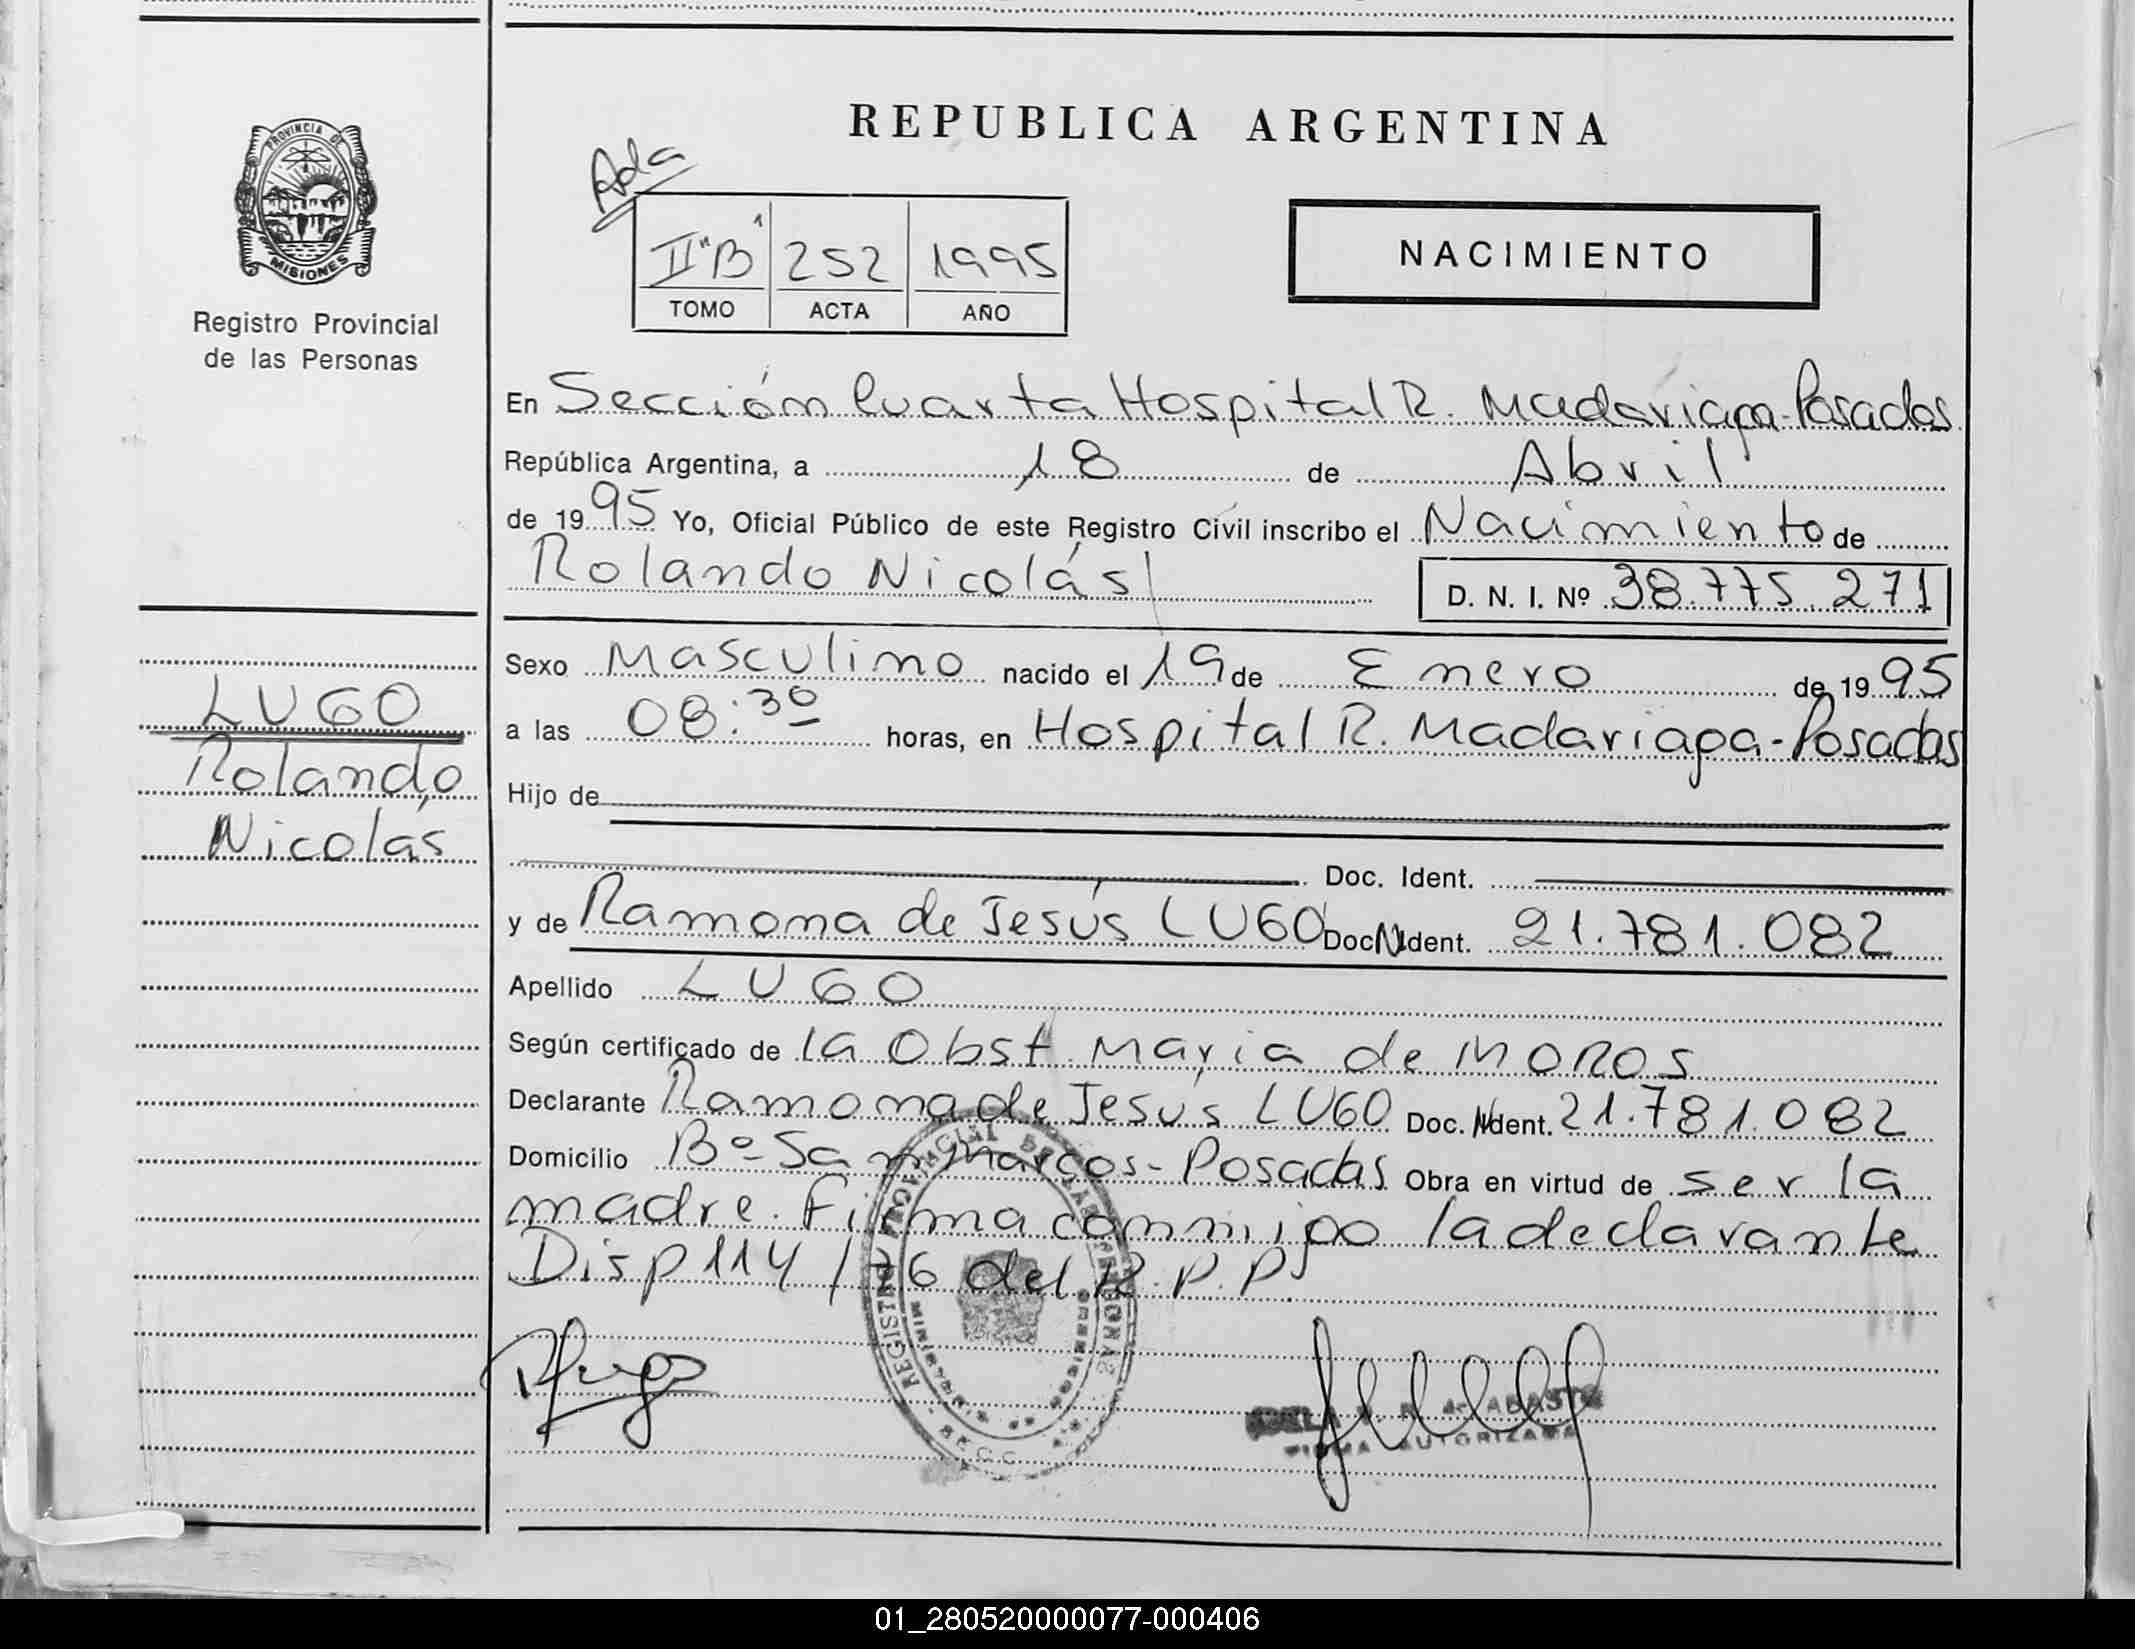 REPUBLICA ARGENTINA
PROVINCIA DE
MISIONES
Registro Provincial
de las Personas
Ada
II "B" 252 1995
TOMO ACTA AÑO
NACIMIENTO
En Sección Cuarta Hospital R. Madariaga-Posadas
República Argentina, a 18 de Abril
de 1995 Yo, Oficial Público de este Registro Civil inscribo el Nacimiento de
Rolando Nicolás D. N. I. Nº 38.775.271
Sexo Masculino nacido el 19 de Enero de 1995
a las 08:30 horas, en Hospital R. Madariaga-Posadas
Hijo de
Doc. Ident.
y de Ramona de Jesús LUGO Doc. Ident. 21.781.082
Apellido LUGO
Según certificado de la Obst. María de Moros
Declarante Ramona de Jesús LUGO Doc. Ident. 21.781.082
Domicilio Bº San Marcos-Posadas Obra en virtud de ser la
madre. Firma conmigo la declarante
Disp 114/76 del R.P.P.
LUGO
Rolando
Nicolás
REGISTRO PROVINCIAL DE LAS PERSONAS
FIRMA AUTORIZADA
01_280520000077-000406